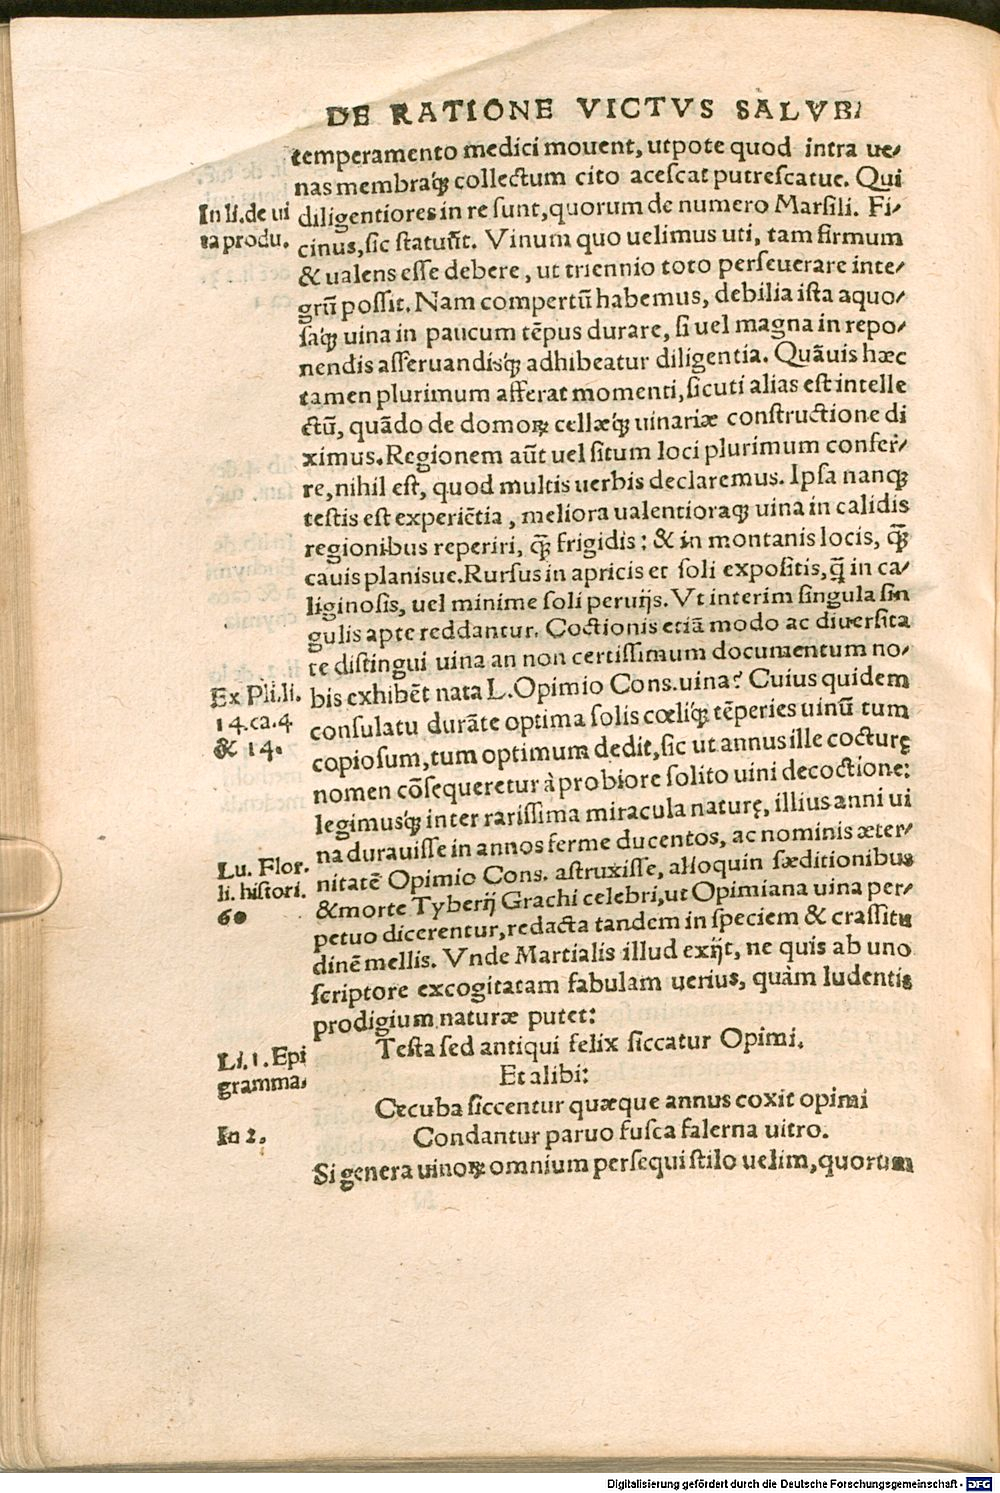 DE RATIONE VICTVS SALVB.
temperamento medici mouent, utpote quod intra ue⸗
nas membraꝗ́ꝫ collectum cito acescat putrescatue. Qui
In li. de ui
diligentiores in re sunt, quorum de numero Marsili. Fi⸗
ta produ.
cinus, sic statuūt. Vinum quo uelimus uti, tam firmum
& ualens esse debere, ut triennio toto perseuerare inte⸗
grū possit. Nam compertū habemus, debilia ista aquo⸗
saꝗ́ꝫ uina in paucum tēpus durare, si uel magna in repo⸗
nendis asseruandisꝗ́ꝫ adhibeatur diligentia. Quāuis hæc
tamen plurimum afferat momenti, sicuti alias est intelle
ctū, quādo de domoꝝ cellæꝗ́ꝫ uinariæ constructione di
ximus. Regionem aūt uel situm loci plurimum confer⸗
re, nihil est, quod multis uerbis declaremus. Ipsa nanqꝫ
testis est experiētia, meliora ualentioraqꝫ uina in calidis
regionibus reperiri, q̄ꝫ frigidis: & in montanis locis, q̄ꝫ
cauis planisue. Rursus in apricis et soli expositis, q̄ in ca⸗
liginosis, uel minime soli peruijs. Vt interim singula sin
gulis apte reddantur. Coctionis etiā modo ac diuersita
te distingui uina an non certissimum documentum no⸗
Ex Pli. li.
bis exhibēt nata L. Opimio Cons. uina? Cuius quidem
14. ca. 4
consulatu durāte optima solis cœliꝗ́ꝫ tēperies uinū tum
& 14.
copiosum, tum optimum dedit, sic ut annus ille cocturę
nomen cōsequeretur à probiore solito uini decoctione:
legimusꝗ́ꝫ inter rarissima miracula naturę, illius anni ui
na durauisse in annos ferme ducentos, ac nominis æter⸗
Lu. Flor.
nitatē Opimio Cons. astruxisse, alioquin sæditionibus
li. histori.
& morte Tyberij Grachi celebri, ut Opimiana uina per⸗
60
petuo dicerentur, redacta tandem in speciem & crassitu
dinē mellis. Vnde Martialis illud exijt, ne quis ab uno
scriptore excogitatam fabulam uerius, quàm ludentis
prodigium naturæ putet:
Li. 1. Epi
Testa sed antiqui felix siccatur Opimi.
gramma.
Et alibi:
Cęcuba siccentur quæque annus coxit opimi
In 2.
Condantur paruo fusca falerna uitro.
Si genera uinoꝝ omnium persequi stilo uelim, quorum
Digitalisierung gefördert durch die Deutsche Forschungsgemeinschaft - DFG